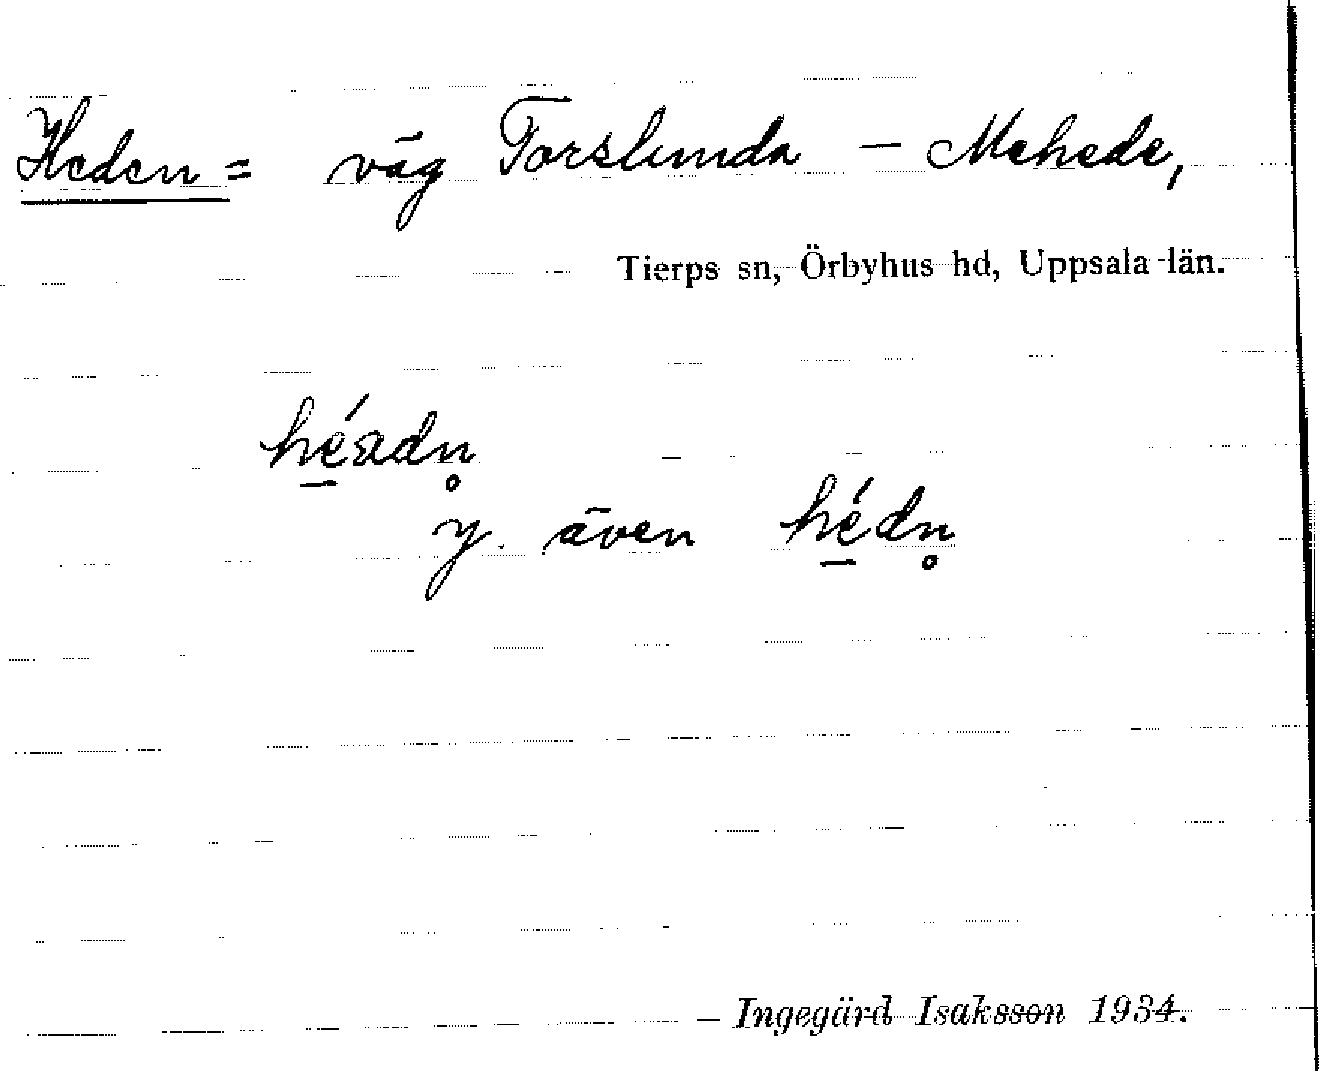 Heden = väg Torslunda – Mehede,
Tierps sn, Örbyhus hd, Uppsala län.
hé̱adn̥
y. även hé̱dn̥
Ingegärd Isaksson 1934.